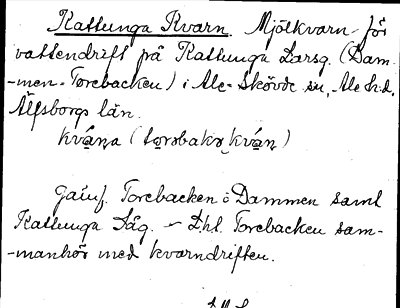 Kattunga Kvarn. Mjölkvarn för
vattendrift på Kattunga Larsg. (Dam-
-men-Torebacken) i Ale-Skövde sn, Ale hd.
Älfsborgs län.
kvána (
Gäinf. Torebacken o Dammen samt
Kattunga Såg. – D.hl. Torebacken sam-
-manhör med kvarndriften.